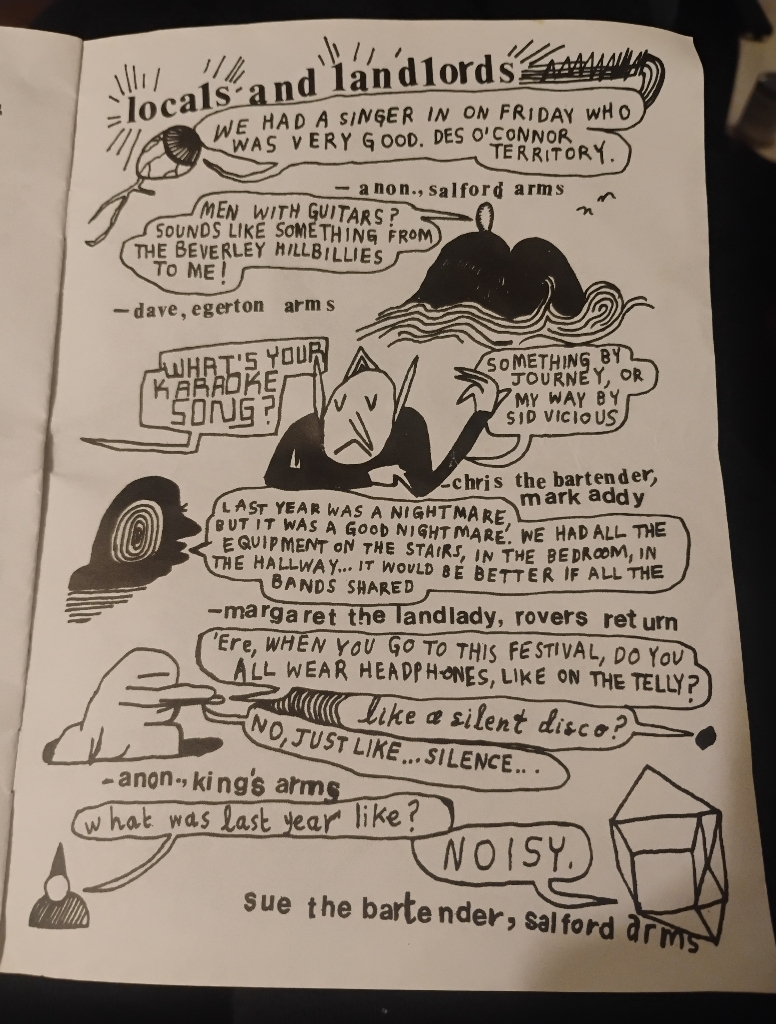 locals and landlords
WE HAD A SINGER IN ON FRIDAY WHO
WAS VERY GOOD. DES O'CONNOR
TERRITORY.
– anon., salford arms
MEN WITH GUITARS?
SOUNDS LIKE SOMETHING FROM
THE BEVERLEY HILLBILLIES
TO ME!
–dave, egerton arms
WHAT'S YOUR
KARAOKE
SONG?
SOMETHING BY
JOURNEY, OR
MY WAY BY
SID VICIOUS
–chris the bartender,
mark addy
LAST YEAR WAS A NIGHTMARE,
BUT IT WAS A GOOD NIGHTMARE. WE HAD ALL THE
EQUIPMENT ON THE STAIRS, IN THE BEDROOM, IN
THE HALLWAY... IT WOULD BE BETTER IF ALL THE
BANDS SHARED
–margaret the landlady, rovers return
'Ere, WHEN YOU GO TO THIS FESTIVAL, DO YOU
ALL WEAR HEADPHONES, LIKE ON THE TELLY?
like a silent disco?
NO, JUST LIKE... SILENCE...
–anon., king's arms
what was last year like?
NOISY.
sue the bartender, salford arms